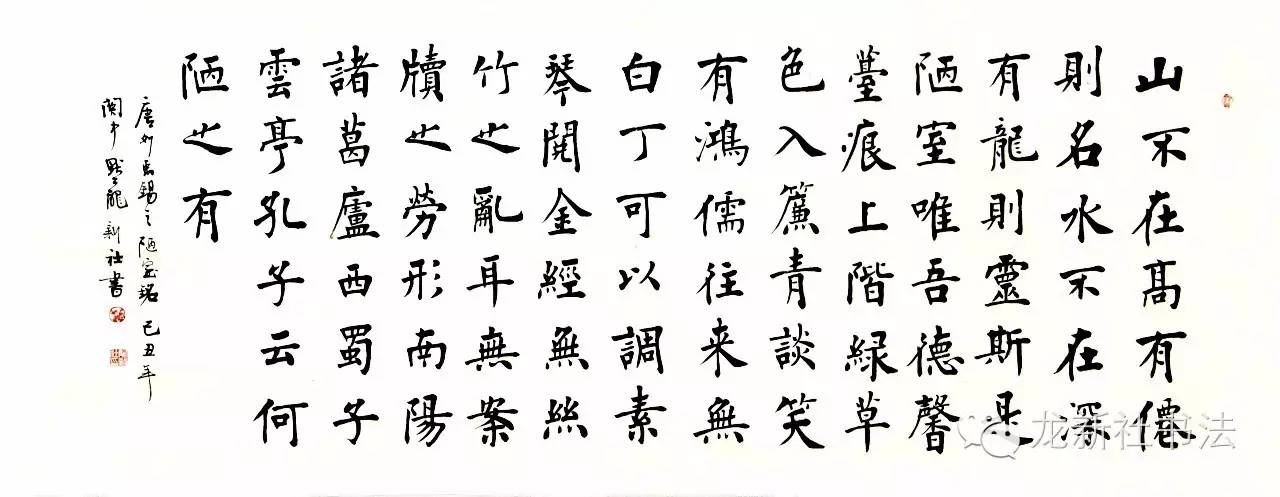 山不在髙有僊
則名水不在深
有龍則靈斯是
陋室唯吾德馨
臺痕上階緑草
色入簾青談笑
有鴻儒往来無
白丁可以調素
琴閱金經無絲
竹之亂耳無案
牘之勞形南陽
諸葛廬西蜀子
雲亭孔子云何
陋之有
唐刘禹錫之陋室銘 己丑年
関中龍新社書
龙新社书法